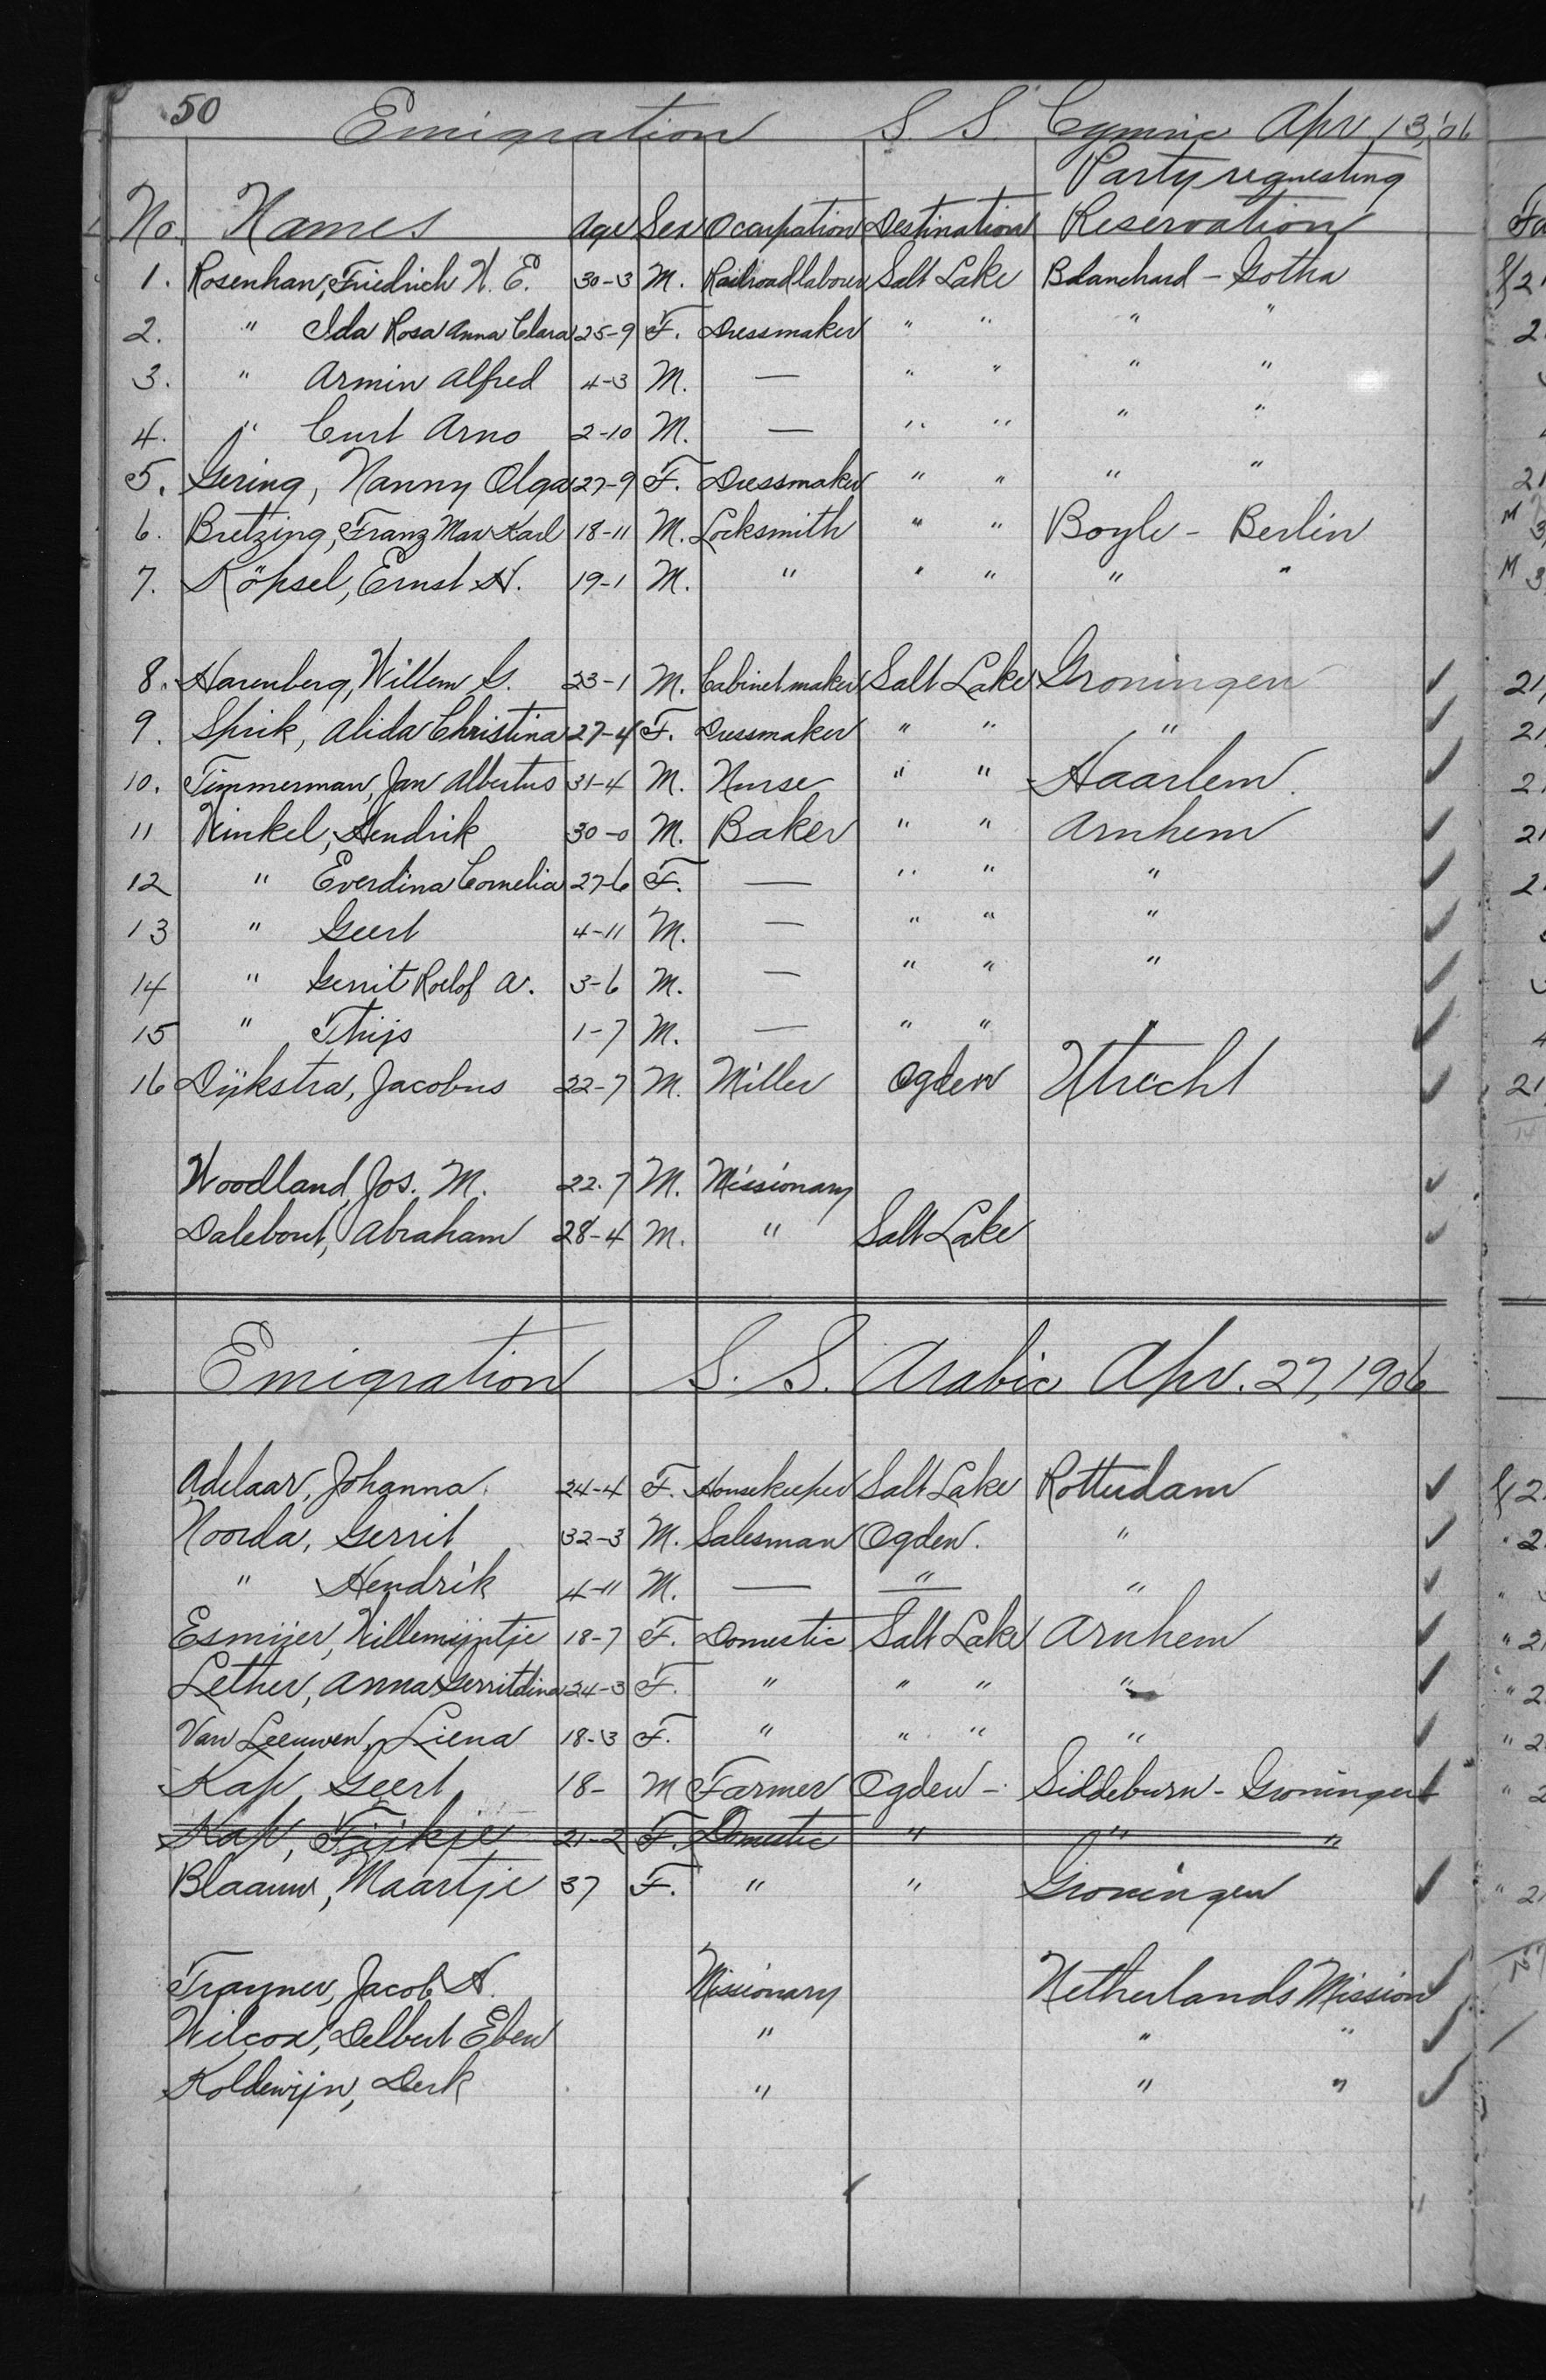 50 Emigration S. S. Cymric Apr. 13, '06
Party requesting
No. Names Age Sex Ocaupation Destination Reservation
1. Rosenhan, Friedrich W. E. 30-3 M. Railroad laborer Salt Lake Blanchard - Gotha
2. " Ida Rosa Anna Clara 25-9 F. Dressmaker " " " "
3. " Armin Alfred 4-3 M. — " " " "
4. " Curt Arno 2-10 M. — " " " "
5. Gering, Nanny Olga 27-9 F. Dressmaker " " " "
6. Bretzing, Franz Max Karl 18-11 M. Locksmith " " Boyle - Berlin
7. Köpsel, Ernst H. 19-1 M. " " " " "
8. Harenberg, Willem G. 23-1 M. Cabinet maker Salt Lake Groningen ✓
9. Sprik, Alida Christina 27-4 F. Dressmaker " " " ✓
10. Timmerman, Jan Albertus 31-4 M. Nurse " " Haarlem. ✓
11 Winkel, Hendrik 30-0 M. Baker " " Arnhem ✓
12 " Everdina Cornelia 27-6 F. — " " " ✓
13 " Geert 4-11 M. — " " " ✓
14 " Gerrit Roelof A. 3-6 M. — " " " ✓
15 " Thijs 1-7 M. — " " " ✓
16 Dijkstra, Jacobus 22-7 M. Miller Ogden Utrecht ✓
Woodland, Jos. M. 22-7 M. Missionary ✓
Dalebout, Abraham 28-4 M. " Salt Lake ✓
Emigration S. S. Arabic Apr. 27, 1906
Adelaar, Johanna. 24-4 F. Housekeeper Salt Lake Rotterdam ✓
Noorda, Gerrit 32-3 M. Salesman Ogden. " ✓
" Hendrik 4-11 M. — " " ✓
Esmijer, Willemijntje 18-7 F. Domestic Salt Lake Arnhem ✓
Lether, Anna Gerritdina 24-3 F. " " " " ✓
Van Leeuwen, Liena 18-3 F. " " " " ✓
Kap, Geert 18- M Farmer Ogden - Siddeburn - Groningen ✓
Kap, Fijkje 21-2 F. Domestic " " "
Blaauw, Maartje 37 F. " " Groningen ✓
Trayner, Jacob H. Missionary Netherlands Mission ✓
Wilcox, Delbert Eben " " " ✓
Koldewijn, Derk " " " ✓